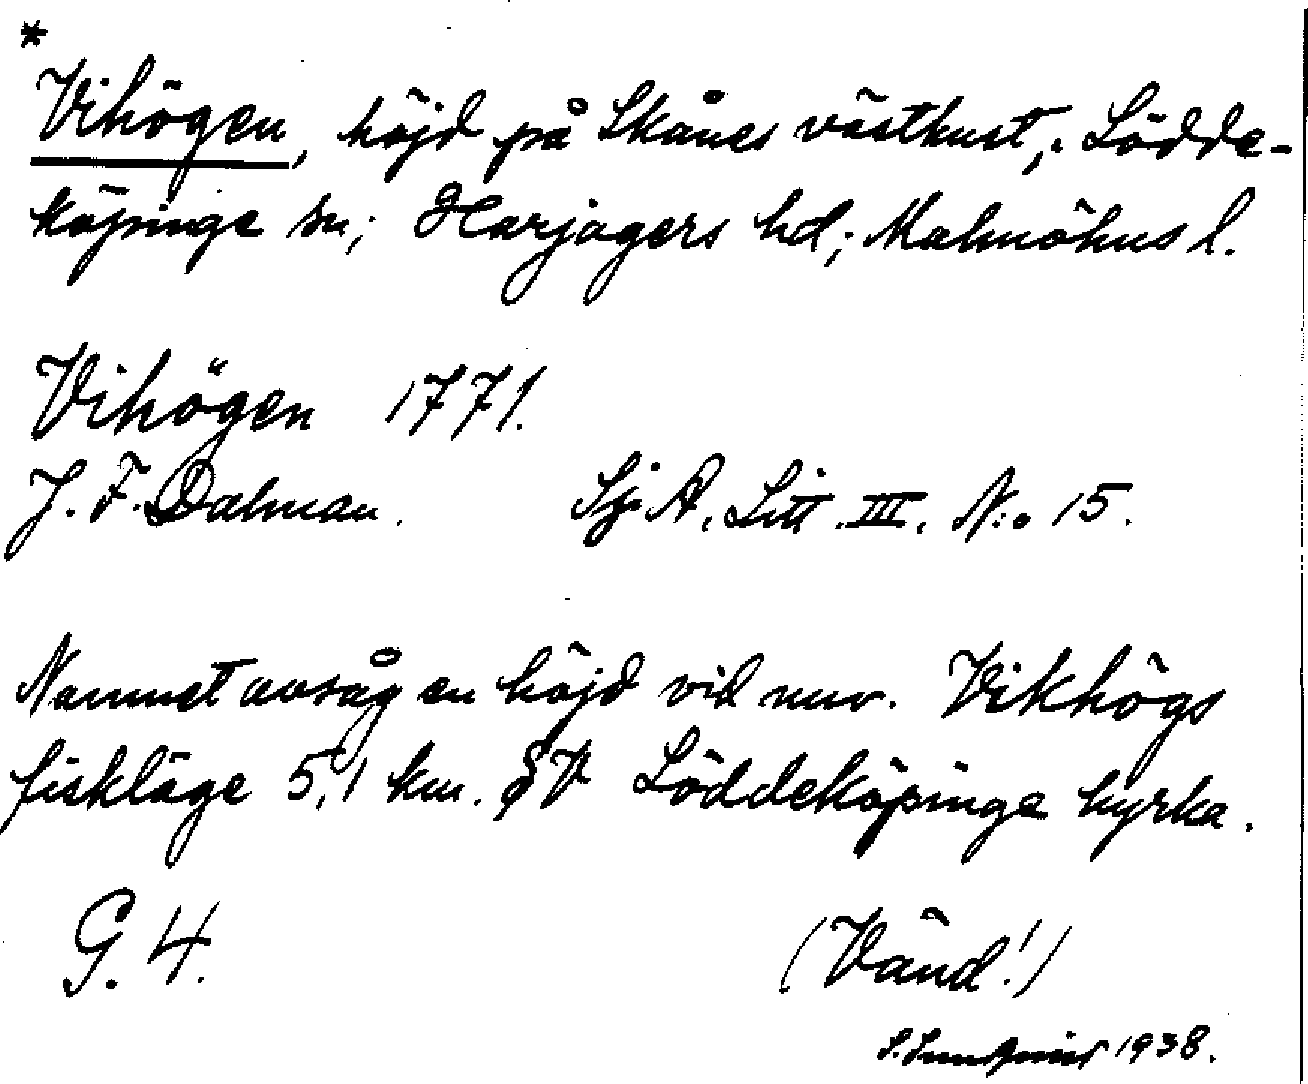 *
Vihögen, höjd på Skånes västkust; Lödde-
köpinge sn; Harjagers hd; Malmöhus l.
Vihögen 1771.
J. F. Dalman. Sj. A. Litt. III. N:o 15.
Namnet avsåg en höjd vid nuv. Vikhögs
fiskläge 5,1 km. SV Löddeköpinge kyrka.
G. 4.
(Vänd!)
1938.